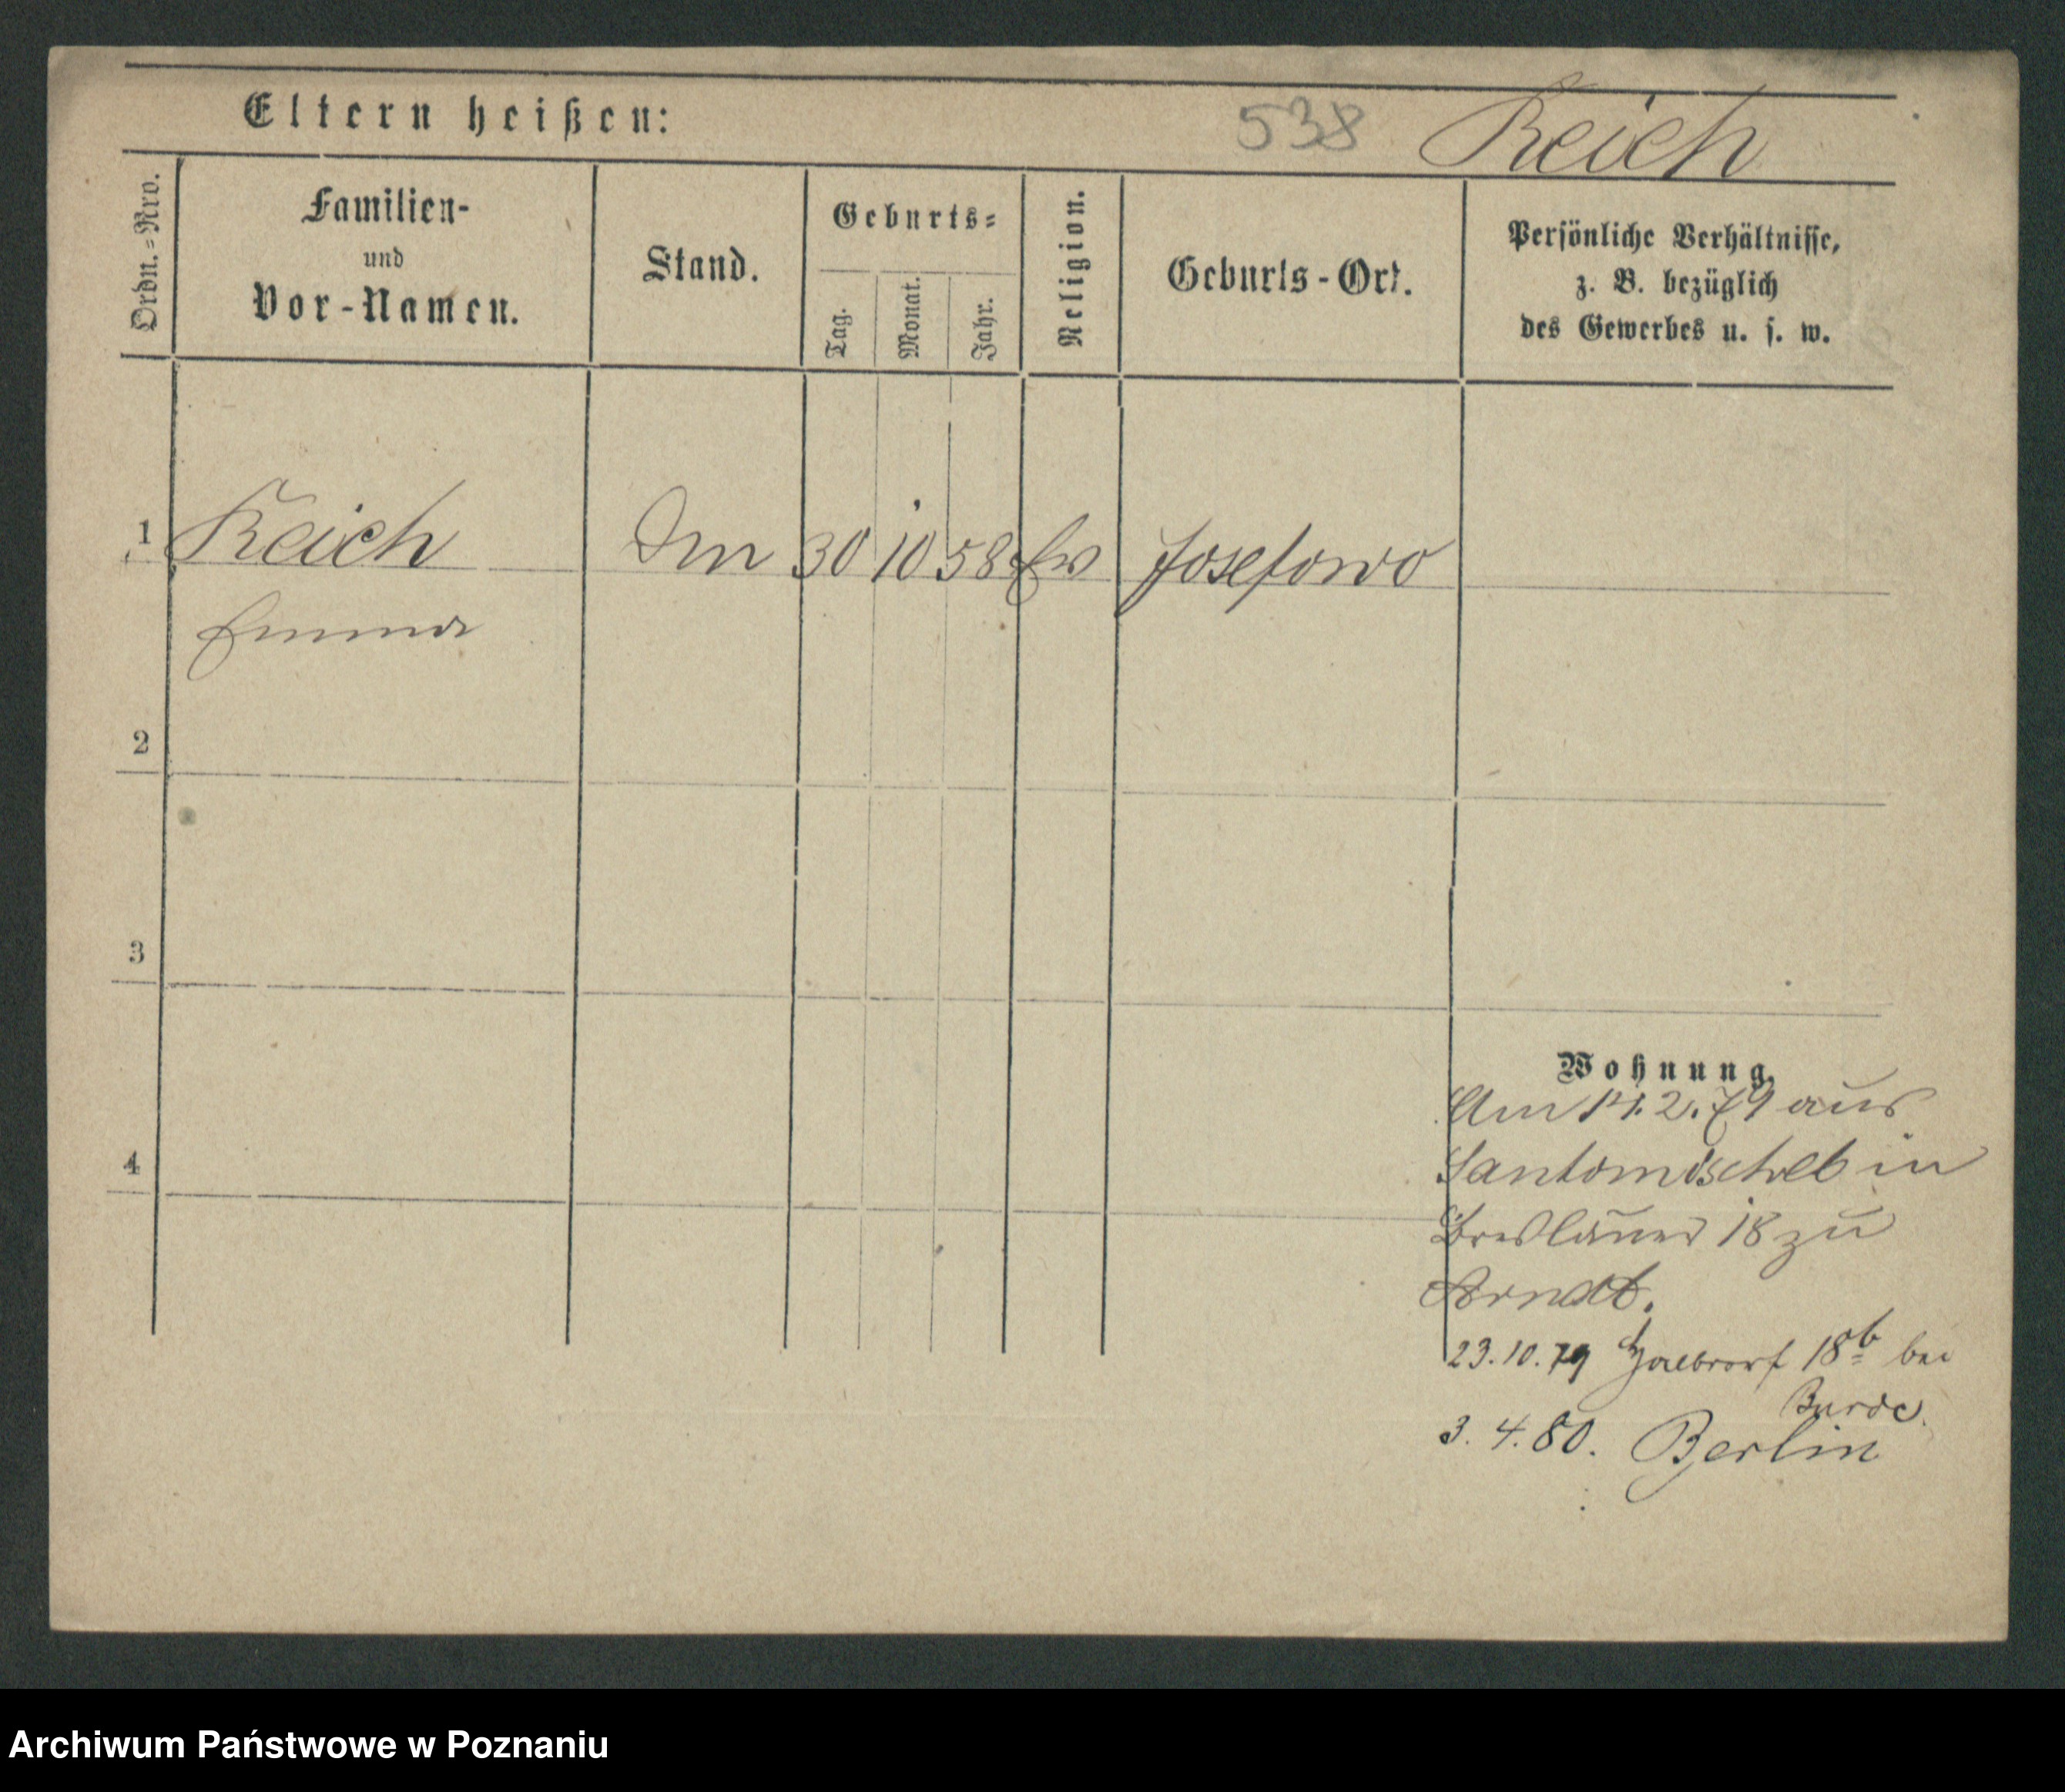 Eltern heißen:
538 Reich
Ordn.=Nro.
Familien-
und
Vor-Namen.
Stand.
Geburts=
Tag.
Monat.
Jahr.
Religion.
Geburts-Ort.
Persönliche Verhältnisse,
z. B. bezüglich
des Gewerbes u. s. w.
1 Reich 30 10 58 Josefowo
Emma
2
3
4
Wohnung.
Am 14.2.79 aus
Santomischel in
Breslauer 18 zu
Arndt.
23.10.79 Halbdorf 18b bei
3. 4. 80. Berlin
Archiwum Państwowe w Poznaniu